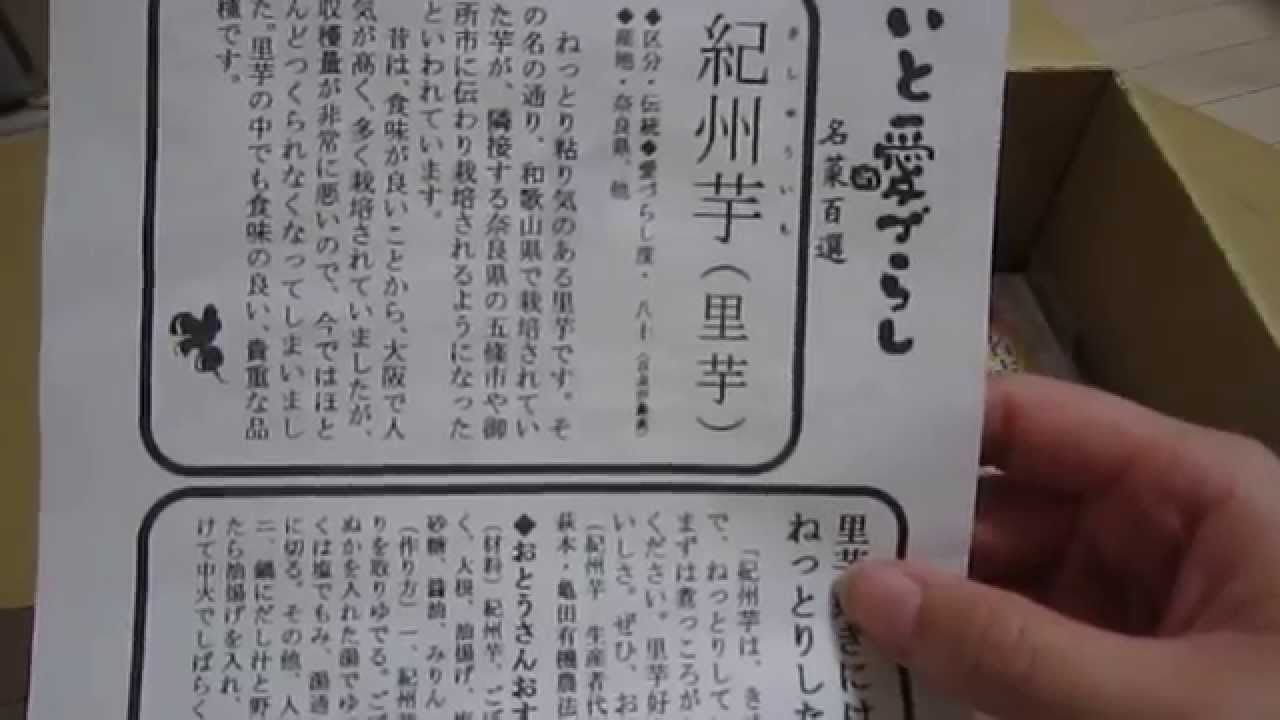 いと愛づらし
名菜百選
きしゅういも
紀州芋（里芋）
◆区分・伝統◆愛づらし度・八十
◆産地・奈良県、他
ねっとり粘り気のある里芋です。そ
の名の通り、和歌山県で栽培されてい
た芋が、隣接する奈良県の五條市や御
所市に伝わり栽培されるようになった
といわれています。
昔は、食味が良いことから、大阪で人
気が高く、多く栽培されていましたが、
収穫量が非常に悪いので、今ではほと
んどつくられなくなってしまいまし
た。里芋の中でも食味の良い、貴重な品
種です。
里芋
きにけ
ねっとりした
「紀州芋は、き
で、ねっとりして
まずは煮っころが
ください。里芋好
いしさ。ぜひ、お
（紀州芋 生産者代
萩本・亀田有機農法
◆おとうさんおす
（材料）紀州芋、ごぼ
く、大根、油揚げ、
砂糖、醤油、みりん
（作り方）一、紀州芋
りを取りゆでる。ご
ぬかを入れた湯でゆ
くは塩でもみ、湯通
に切る。その他、人
二、鍋にだし汁と野
たら油揚げを入れ、
けて中火でしばらく